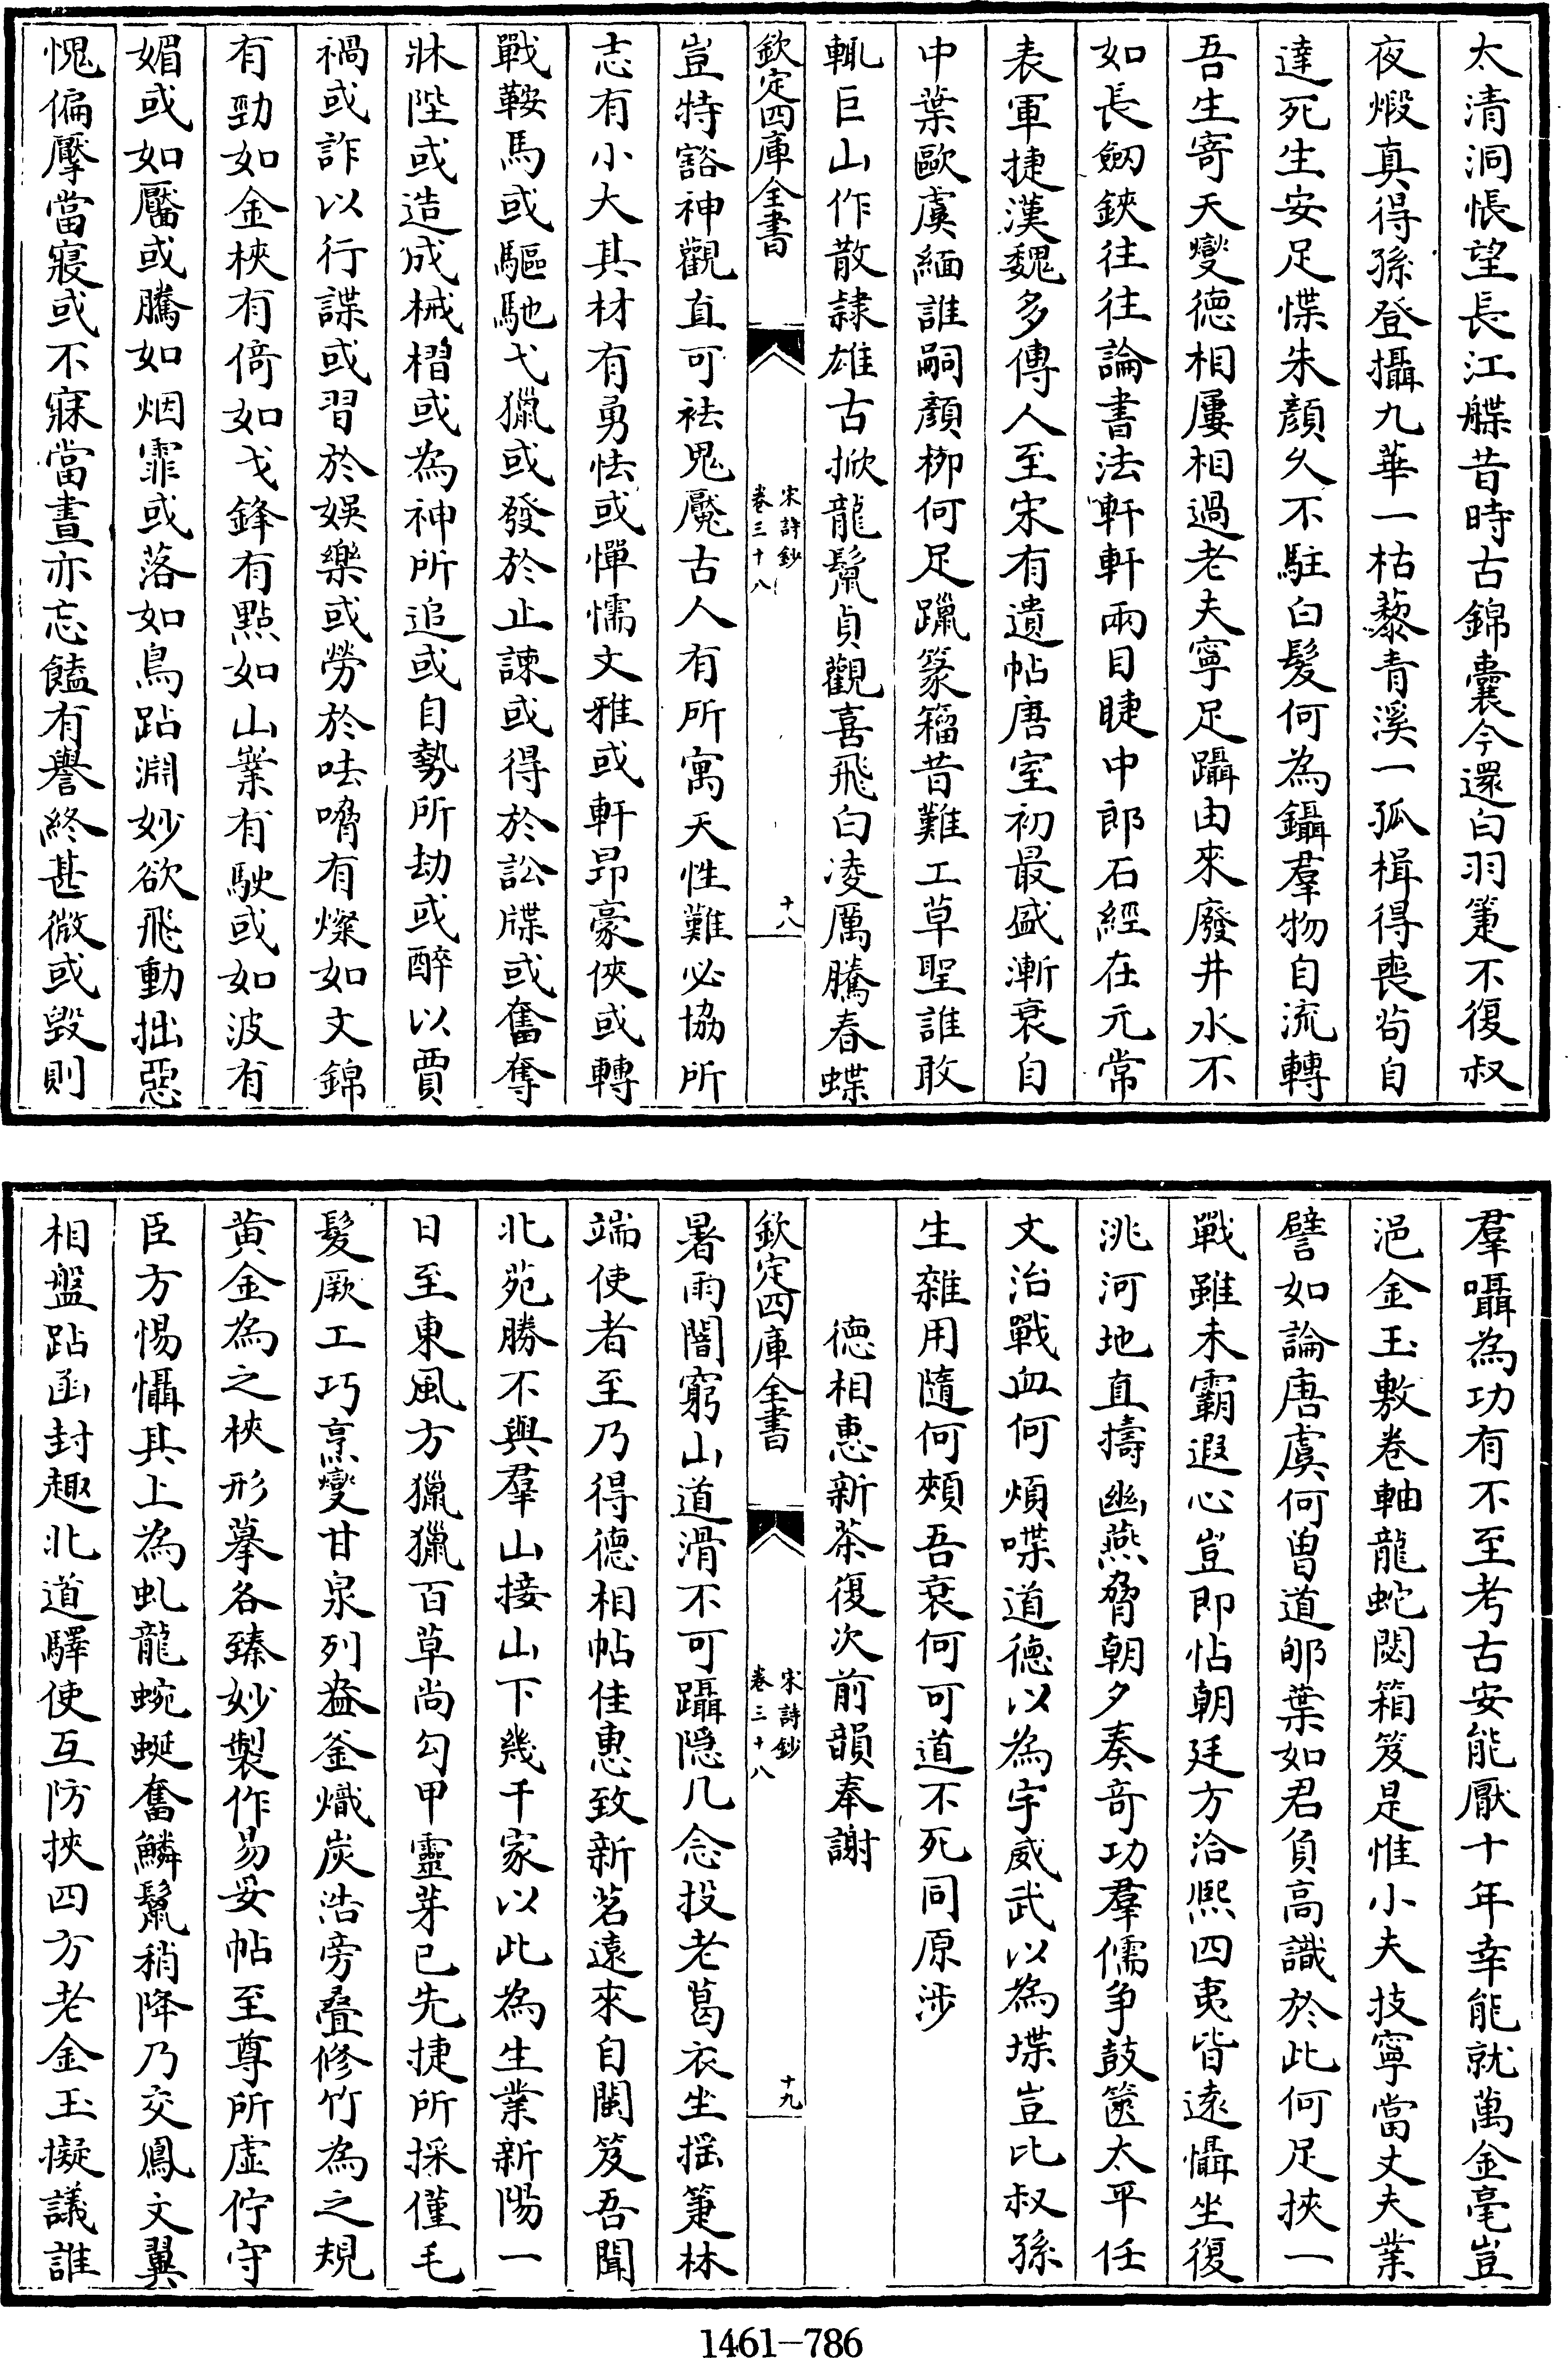 太清洞悵望長江艓昔時古錦囊今還白羽箑不復叔
夜煅真得孫登攝九華一枯藜青溪一孤楫得喪茍自
達死生安足惵朱顏久不駐白髪何為鑷羣物自流轉
吾生寄天變德相屢相過老夫寧足躡由來廢井水不
如長劒鋏往往論書法軒軒兩目睫中郎石經在元常
表軍捷漢魏多傳人至宋有遺帖唐室初最盛漸衰自
中葉歐虞緬誰嗣顔柳何足躐篆籀昔難工草聖誰敢
輒巨山作散隷雄古掀龍鬛貞觀喜飛白凌厲騰春蝶
欽定四庫全書
宋詩鈔
卷三十八
十八
豈特豁神觀直可袪鬼魘古人有所寓天性難必協所
志有小大其材有勇怯或憚懦文雅或軒昂豪俠或轉
戰鞍馬或驅馳弋獵或發於止諫或得於訟牒或奮奪
牀陛或造成械槢或為神所追或自勢所劫或醉以賈
禍或詐以行諜或習於娛樂或勞於呿嗋有燦如文錦
有勁如金梜有倚如戈鋒有點如山嶪有駛或如波有
媚或如靨或騰如烟霏或落如鳥跕淵妙欲飛動拙惡
愧偏擪當寢或不寐當晝亦忘饁有譽終甚微或毀則
羣囁為功有不至考古安能厭十年幸能就萬金毫豈
浥金玉敷卷軸龍蛇閟箱笈是惟小夫技寧當丈夫業
譬如論唐虞何曽道郇葉如君負高識於此何足挾一
戰雖未霸遐心豈即怗朝廷方洽熙四夷皆遠懾坐復
洮河地直擣幽燕脅朝夕奏竒功羣儒爭鼓篋太平任
文治戰血何煩喋道德以為宇威武以為堞豈比叔孫
生雜用隨何頰吾衰何可道不死同原涉
德相惠新茶復次前韻奉謝
欽定四庫全書
宋詩鈔
卷三十八
十九
暑雨闇窮山道滑不可躡隠几念投老葛衣坐揺箑林
端使者至乃得德相帖佳惠致新茗遠來自閩笈吾聞
北苑勝不與羣山接山下幾千家以此為生業新陽一
日至東風方獵獵百草尚勾甲靈芽已先捷所採僅毛
髮厥工巧烹變甘泉列盎釜熾炭浩旁疊修竹為之規
黄金為之梜形摹各臻妙製作易妥帖至尊所虛佇守
臣方惕懾其上為虬龍蜿蜒奮鱗鬛稍降乃交鳳文翼
相盤跕函封趣北道驛使互防挾四方老金玉擬議誰
1461-786